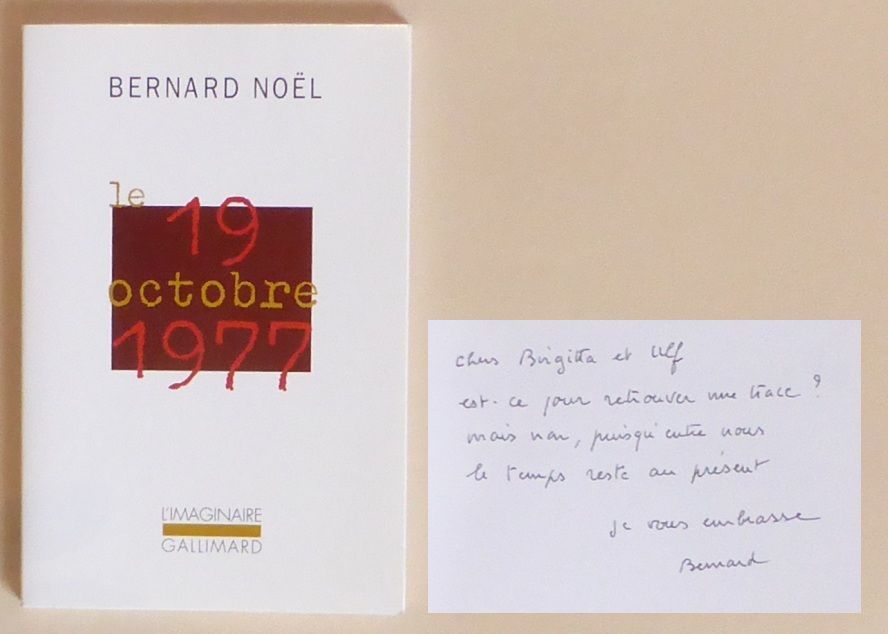 BERNARD NOËL
le
19
octobre
1977
L'IMAGINAIRE
GALLIMARD
chers Birgitta et Ulf
est-ce pour retrouver une trace ?
mais non, puisqu'entre nous
le temps reste au présent
je vous embrasse
Bernard